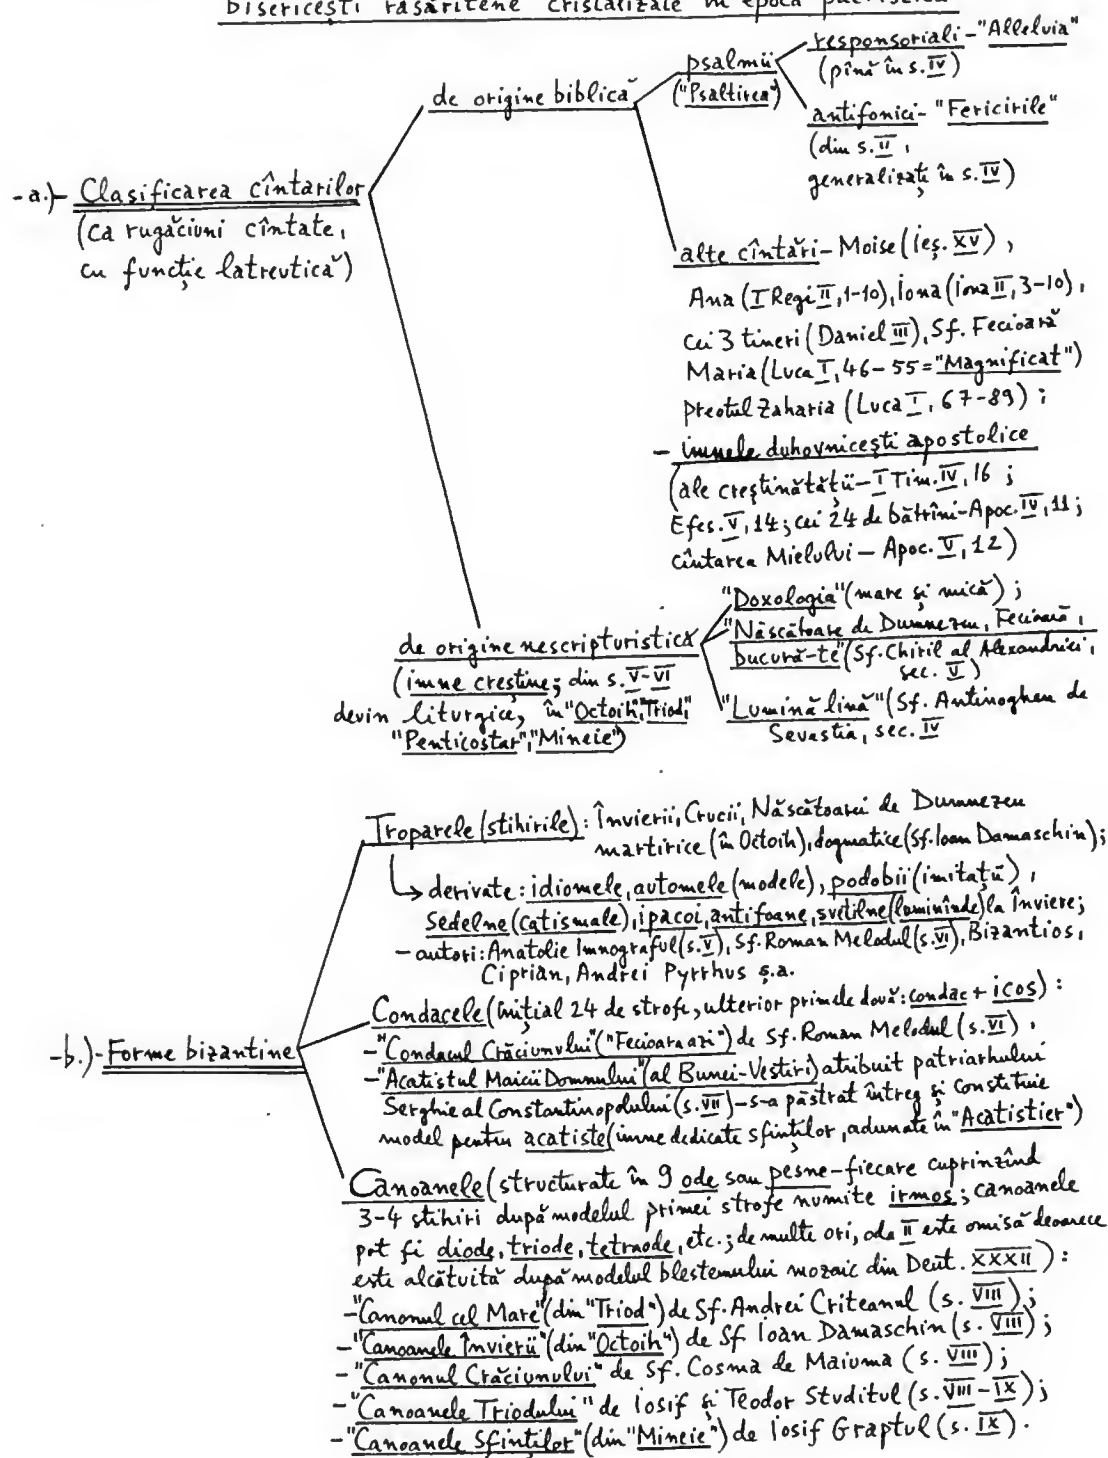 bisericești răsăritene cristalizate în epoca patristică
responsoriali - "Alleluia"
(pînă în s. IV)
psalmii
("Psaltirea")
de origine biblică
antifonici - "Fericirile"
(din s. II,
generalizați în s. IV)
-a.)- Clasificarea cîntărilor
(ca rugăciuni cîntate,
cu funcție latreutică)
alte cîntări - Moise (Ieș. XV),
Ana (I Regi II, 1-10), Iona (Iona II, 3-10),
cei 3 tineri (Daniel III), Sf. Fecioară
Maria (Luca I, 46-55 = "Magnificat")
preotul Zaharia (Luca I, 67-89);
- imnele duhovnicești apostolice
(ale creștinătății - I Tim. IV, 16;
Efes. V, 14; cei 24 de bătrîni - Apoc. IV, 11;
cîntarea Mielului - Apoc. V, 12)
"Doxologia" (mare și mică);
"Născătoare de Dumnezeu, Fecioară,
bucură-te" (Sf. Chiril al Alexandriei,
sec. V)
de origine nescripturistică
(imne creștine; din s. V-VI
devin liturgice, în "Octoih", "Triod",
"Penticostar", "Mineie")
"Lumină lină" (Sf. Antinoghen de
Sevastia, sec. IV
Troparele (stihirile): Învierii, Crucii, Născătoarei de Dumnezeu
martirice (în Octoih), dogmatice (Sf. Ioan Damaschin);
→ derivate: idiomele, automele (modele), podobii (imitații),
sedelne (catismale), ipacoi, antifoane, svetilne (luminînde) la Înviere;
- autori: Anatolie Imnograful (s. V), Sf. Roman Melodul (s. VI), Bizantios,
Ciprian, Andrei Pyrrhus ș.a.
-b.)- Forme bizantine
Condacele (inițial 24 de strofe, ulterior primele două: condac + icos):
- "Condacul Crăciunului" ("Fecioara azi") de Sf. Roman Melodul (s. VI),
- "Acatistul Maicii Domnului" (al Bunei-Vestiri) atribuit patriarhului
Serghie al Constantinopolului (s. VII) - s-a păstrat întreg și constituie
model pentru acatiste (imne dedicate sfinților, adunate în "Acatistier")
Canoanele (structurate în 9 ode sau pesne - fiecare cuprinzînd
3-4 stihiri după modelul primei strofe numite irmos; canoanele
pot fi diode, triode, tetraode, etc.; de multe ori, oda II este omisă deoarece
este alcătuită după modelul blestemului mozaic din Deut. XXXII):
- "Canonul cel Mare" (din "Triod") de Sf. Andrei Criteanul (s. VIII);
- "Canoanele Învierii" (din "Octoih") de Sf Ioan Damaschin (s. VIII);
- "Canonul Crăciunului" de Sf. Cosma de Maiuma (s. VIII);
- "Canoanele Triodului" de Iosif și Teodor Studitul (s. VIII-IX);
- "Canoanele Sfinților" (din "Mineie") de Iosif Graptul (s. IX).